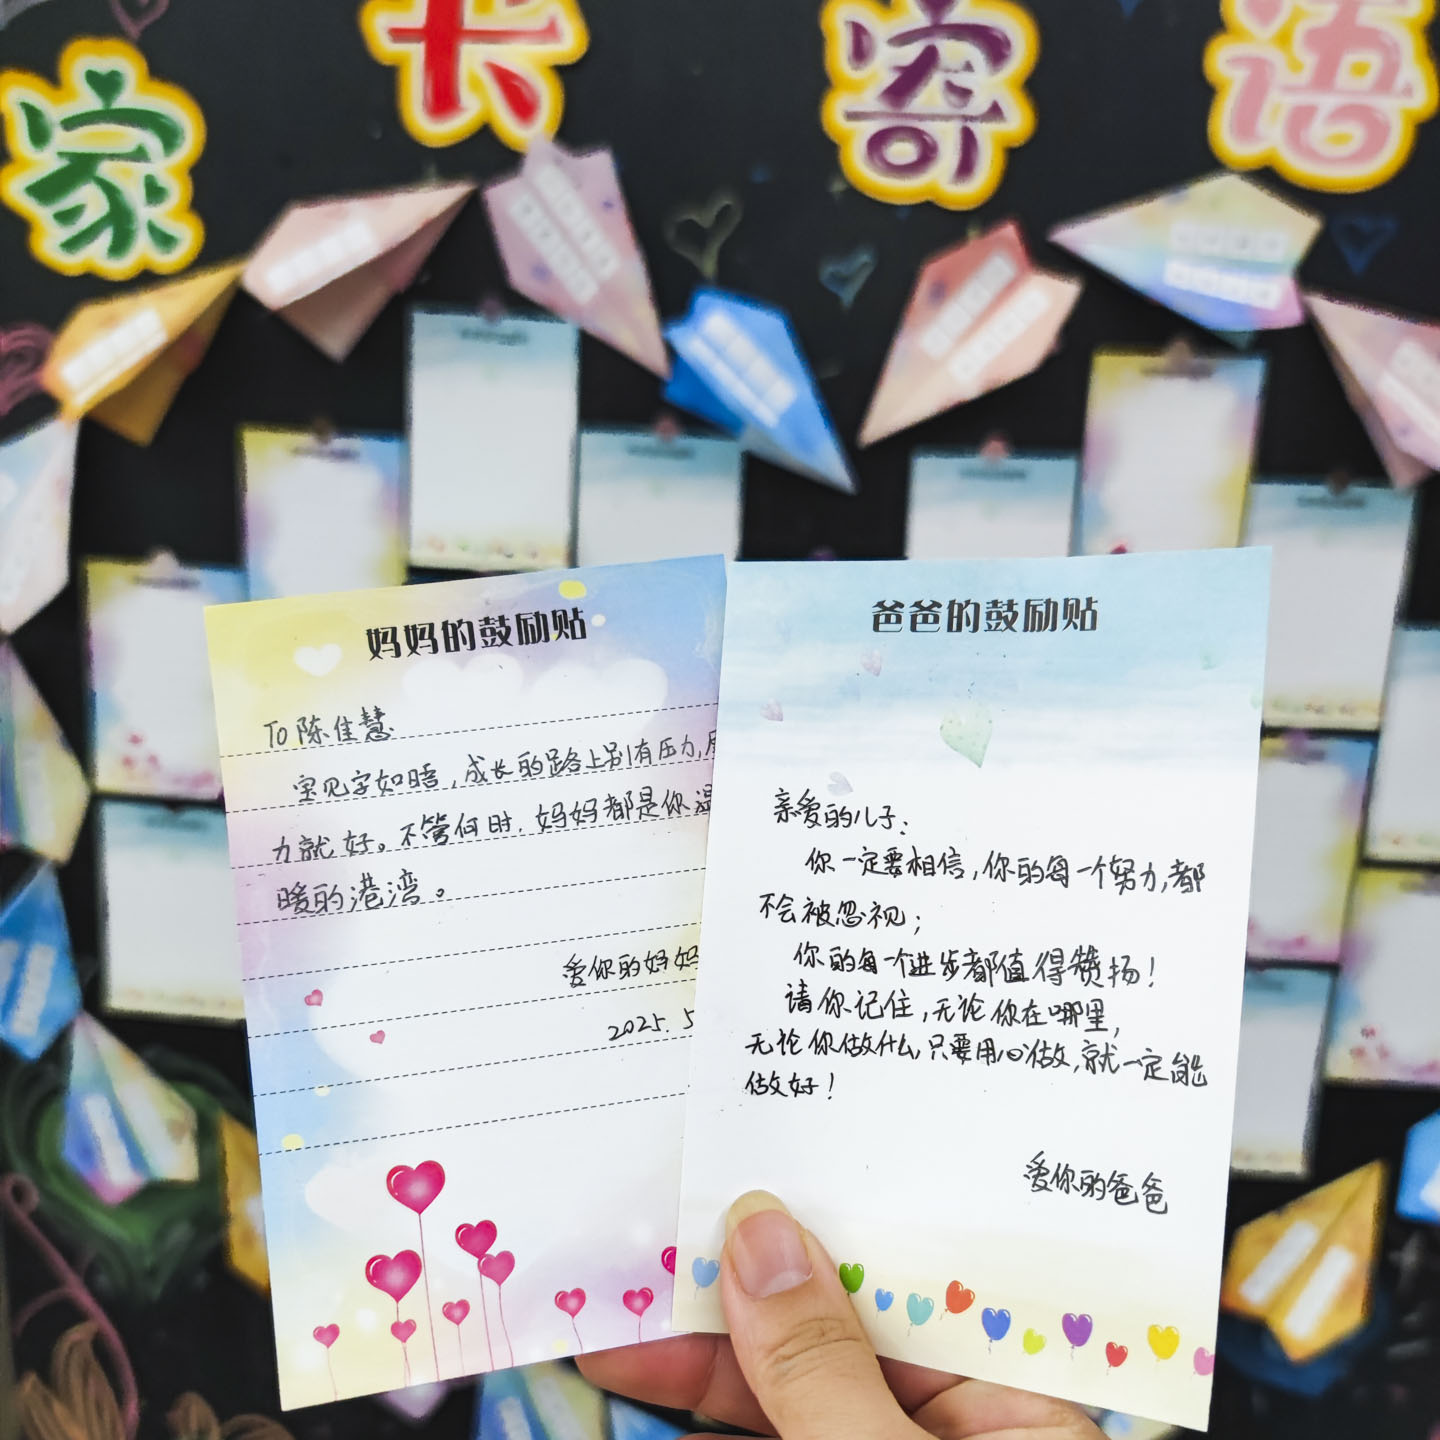 家长寄语
妈妈的鼓励贴
To 陈佳慧
宝见字如晤,成长的路上别有压力,
力就好。不管何时,妈妈都是你温
暖的港湾。
爱你的妈妈
2025.5
爸爸的鼓励贴
亲爱的儿子:
你一定要相信,你的每一个努力,都
不会被忽视;
你的每一个进步都值得赞扬!
请你记住,无论你在哪里,
无论你做什么,只要用心做,就一定能
做好!
爱你的爸爸